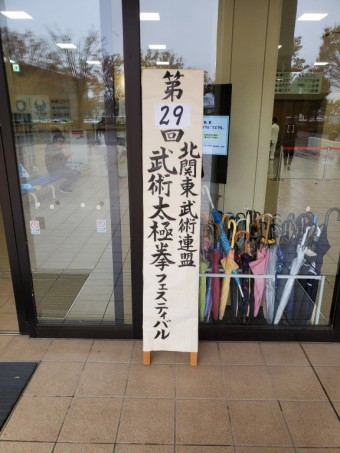 第29回
北関東武術連盟
武術太極拳フェスティバル